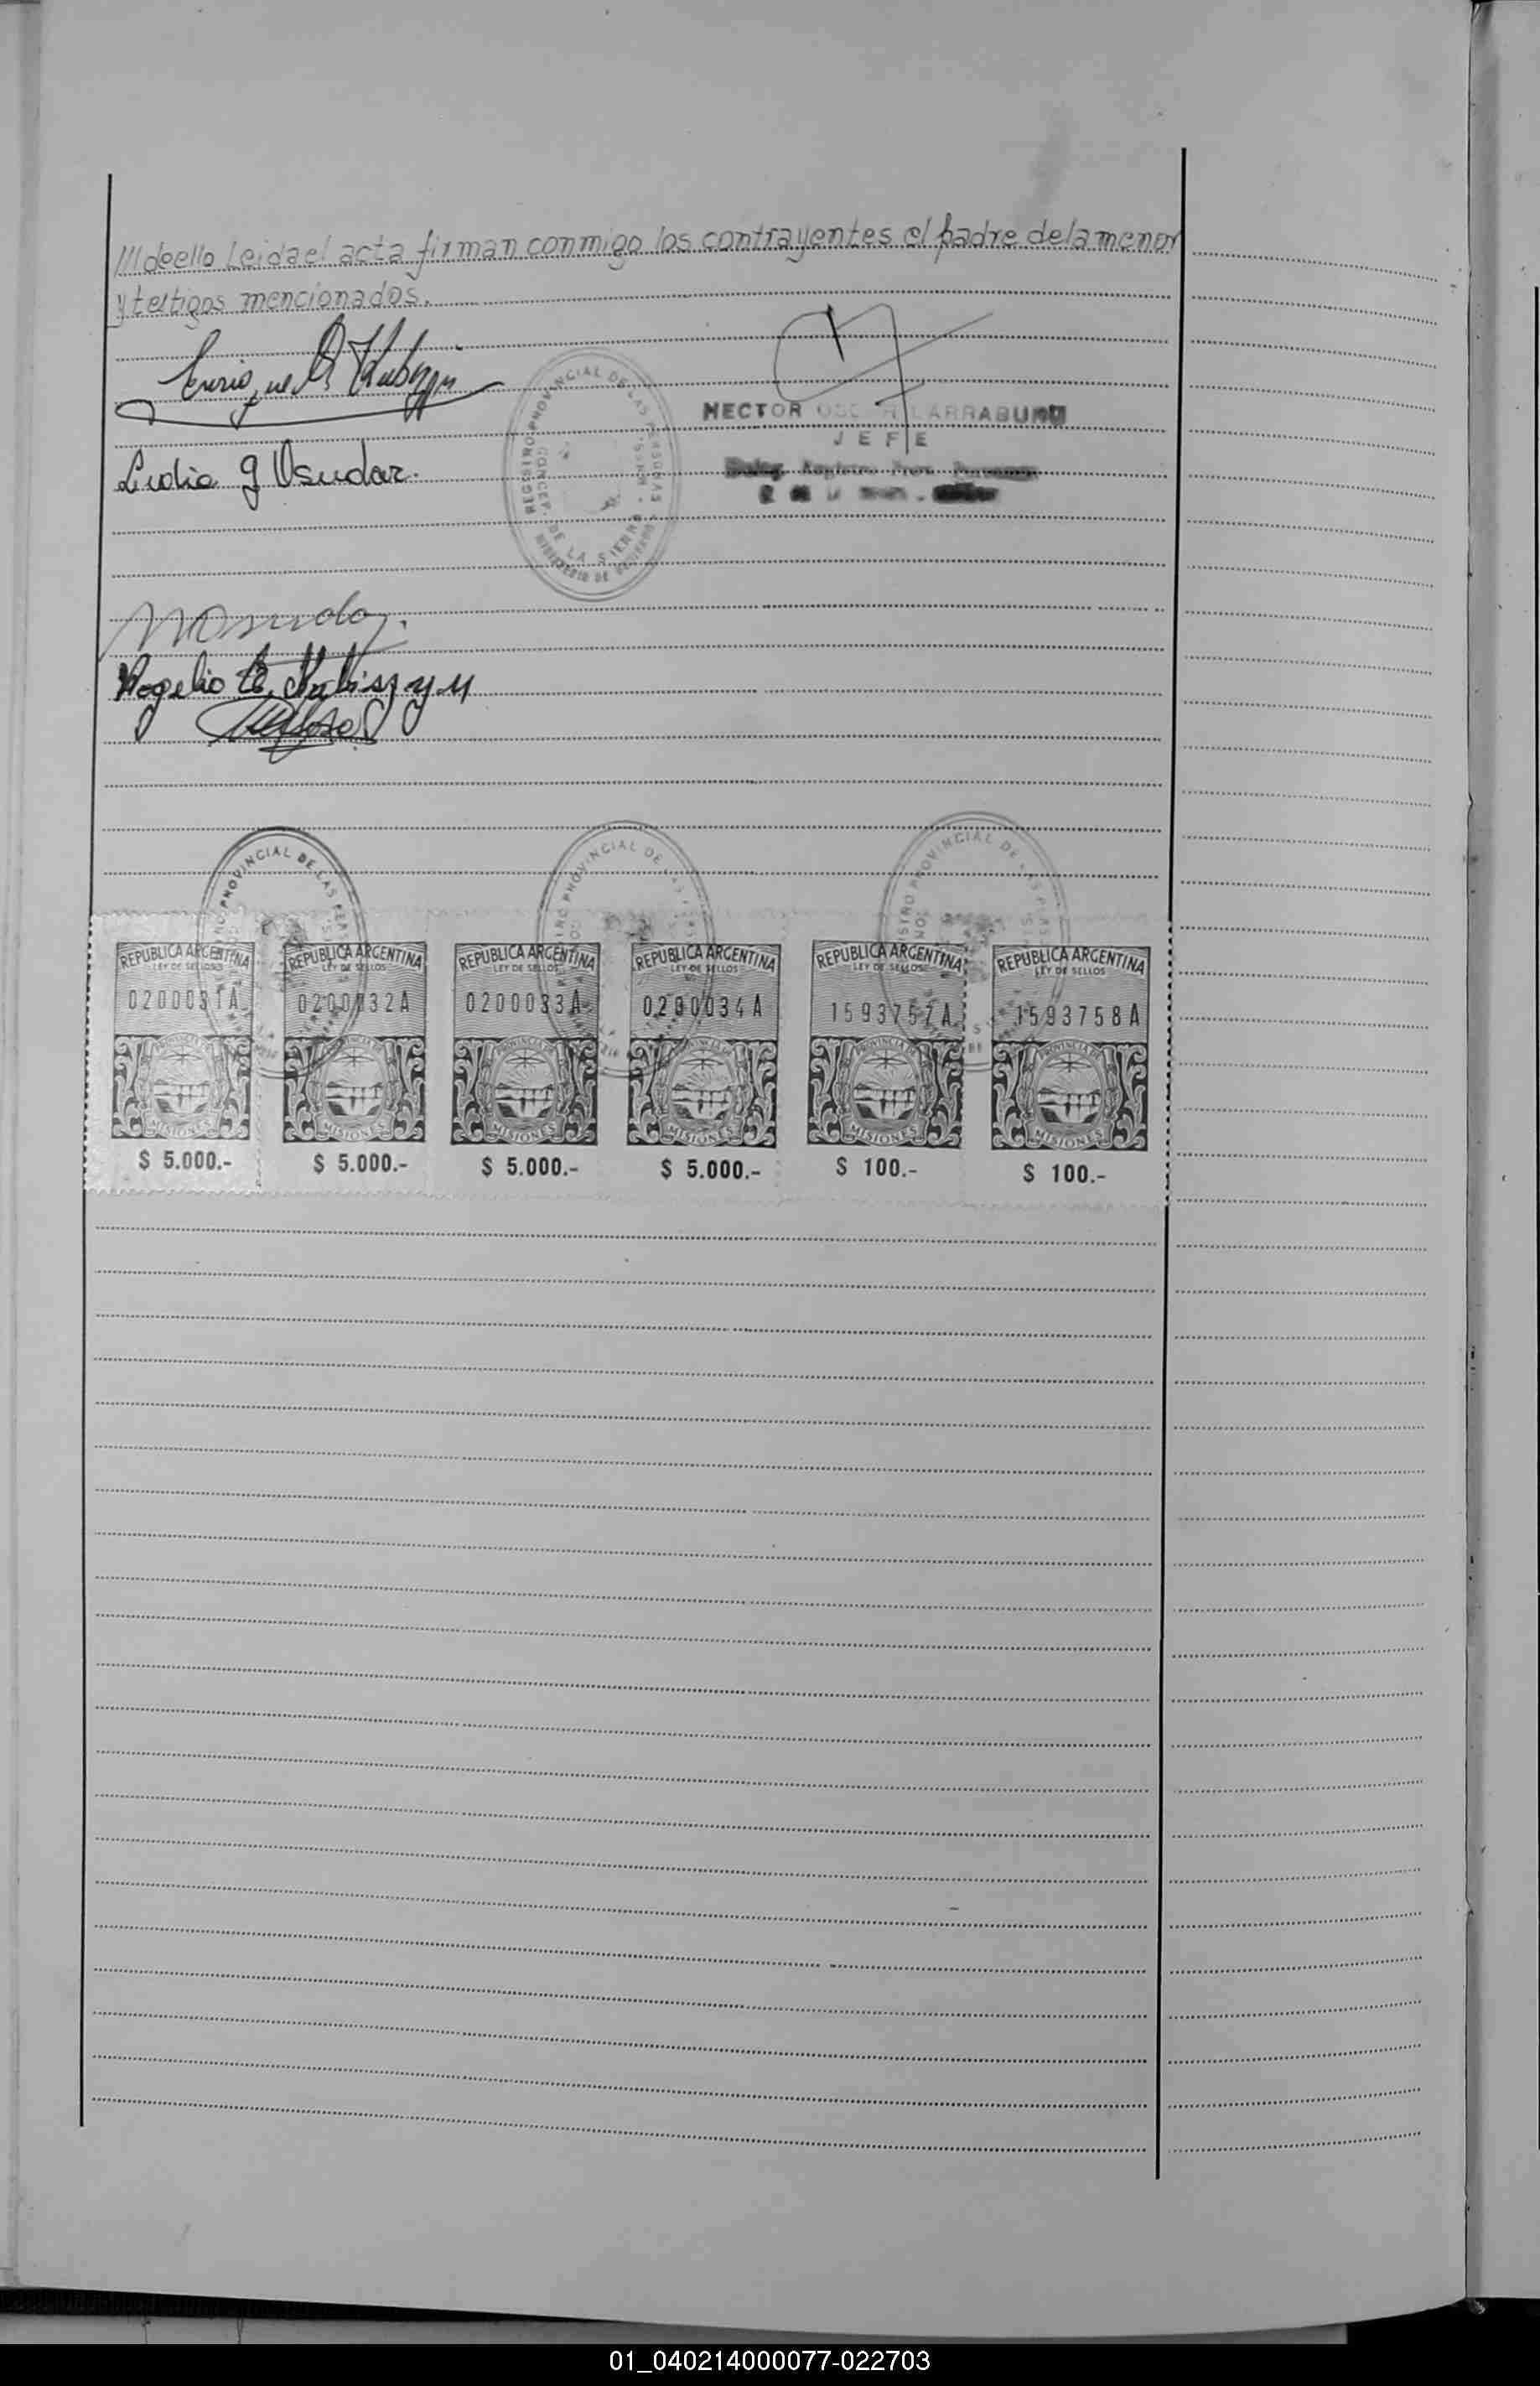 ///deello Leida el acta firman conmigo los contrayentes el padre de la menor
y testigos mencionados.
Enrique
Lidia g Osudar.
HECTOR OSCAR LARRABURU
JEFE
REGISTRO PROVINCIAL DE LAS PERSONAS
CONCEP. DE LA SIERRA
MINISTERIO DE GOBIERNO
Rogelio
PROVINCIAL DE LAS PER
PROVINCIAL DE LAS
PROVINCIAL DE LAS
REPUBLICA ARGENTINA
LEY DE SELLOS
0200031A
PROVINCIA DE
MISIONES
$ 5.000.-
REPUBLICA ARGENTINA
LEY DE SELLOS
0200032A
PROVINCIA DE
MISIONES
$ 5.000.-
REPUBLICA ARGENTINA
LEY DE SELLOS
0200033A
PROVINCIA DE
MISIONES
$ 5.000.-
REPUBLICA ARGENTINA
LEY DE SELLOS
0200034A
PROVINCIA DE
MISIONES
$ 5.000.-
REPUBLICA ARGENTINA
LEY DE SELLOS
1593757A
PROVINCIA DE
MISIONES
$ 100.-
REPUBLICA ARGENTINA
LEY DE SELLOS
1593758A
PROVINCIA DE
MISIONES
$ 100.-
01_040214000077-022703